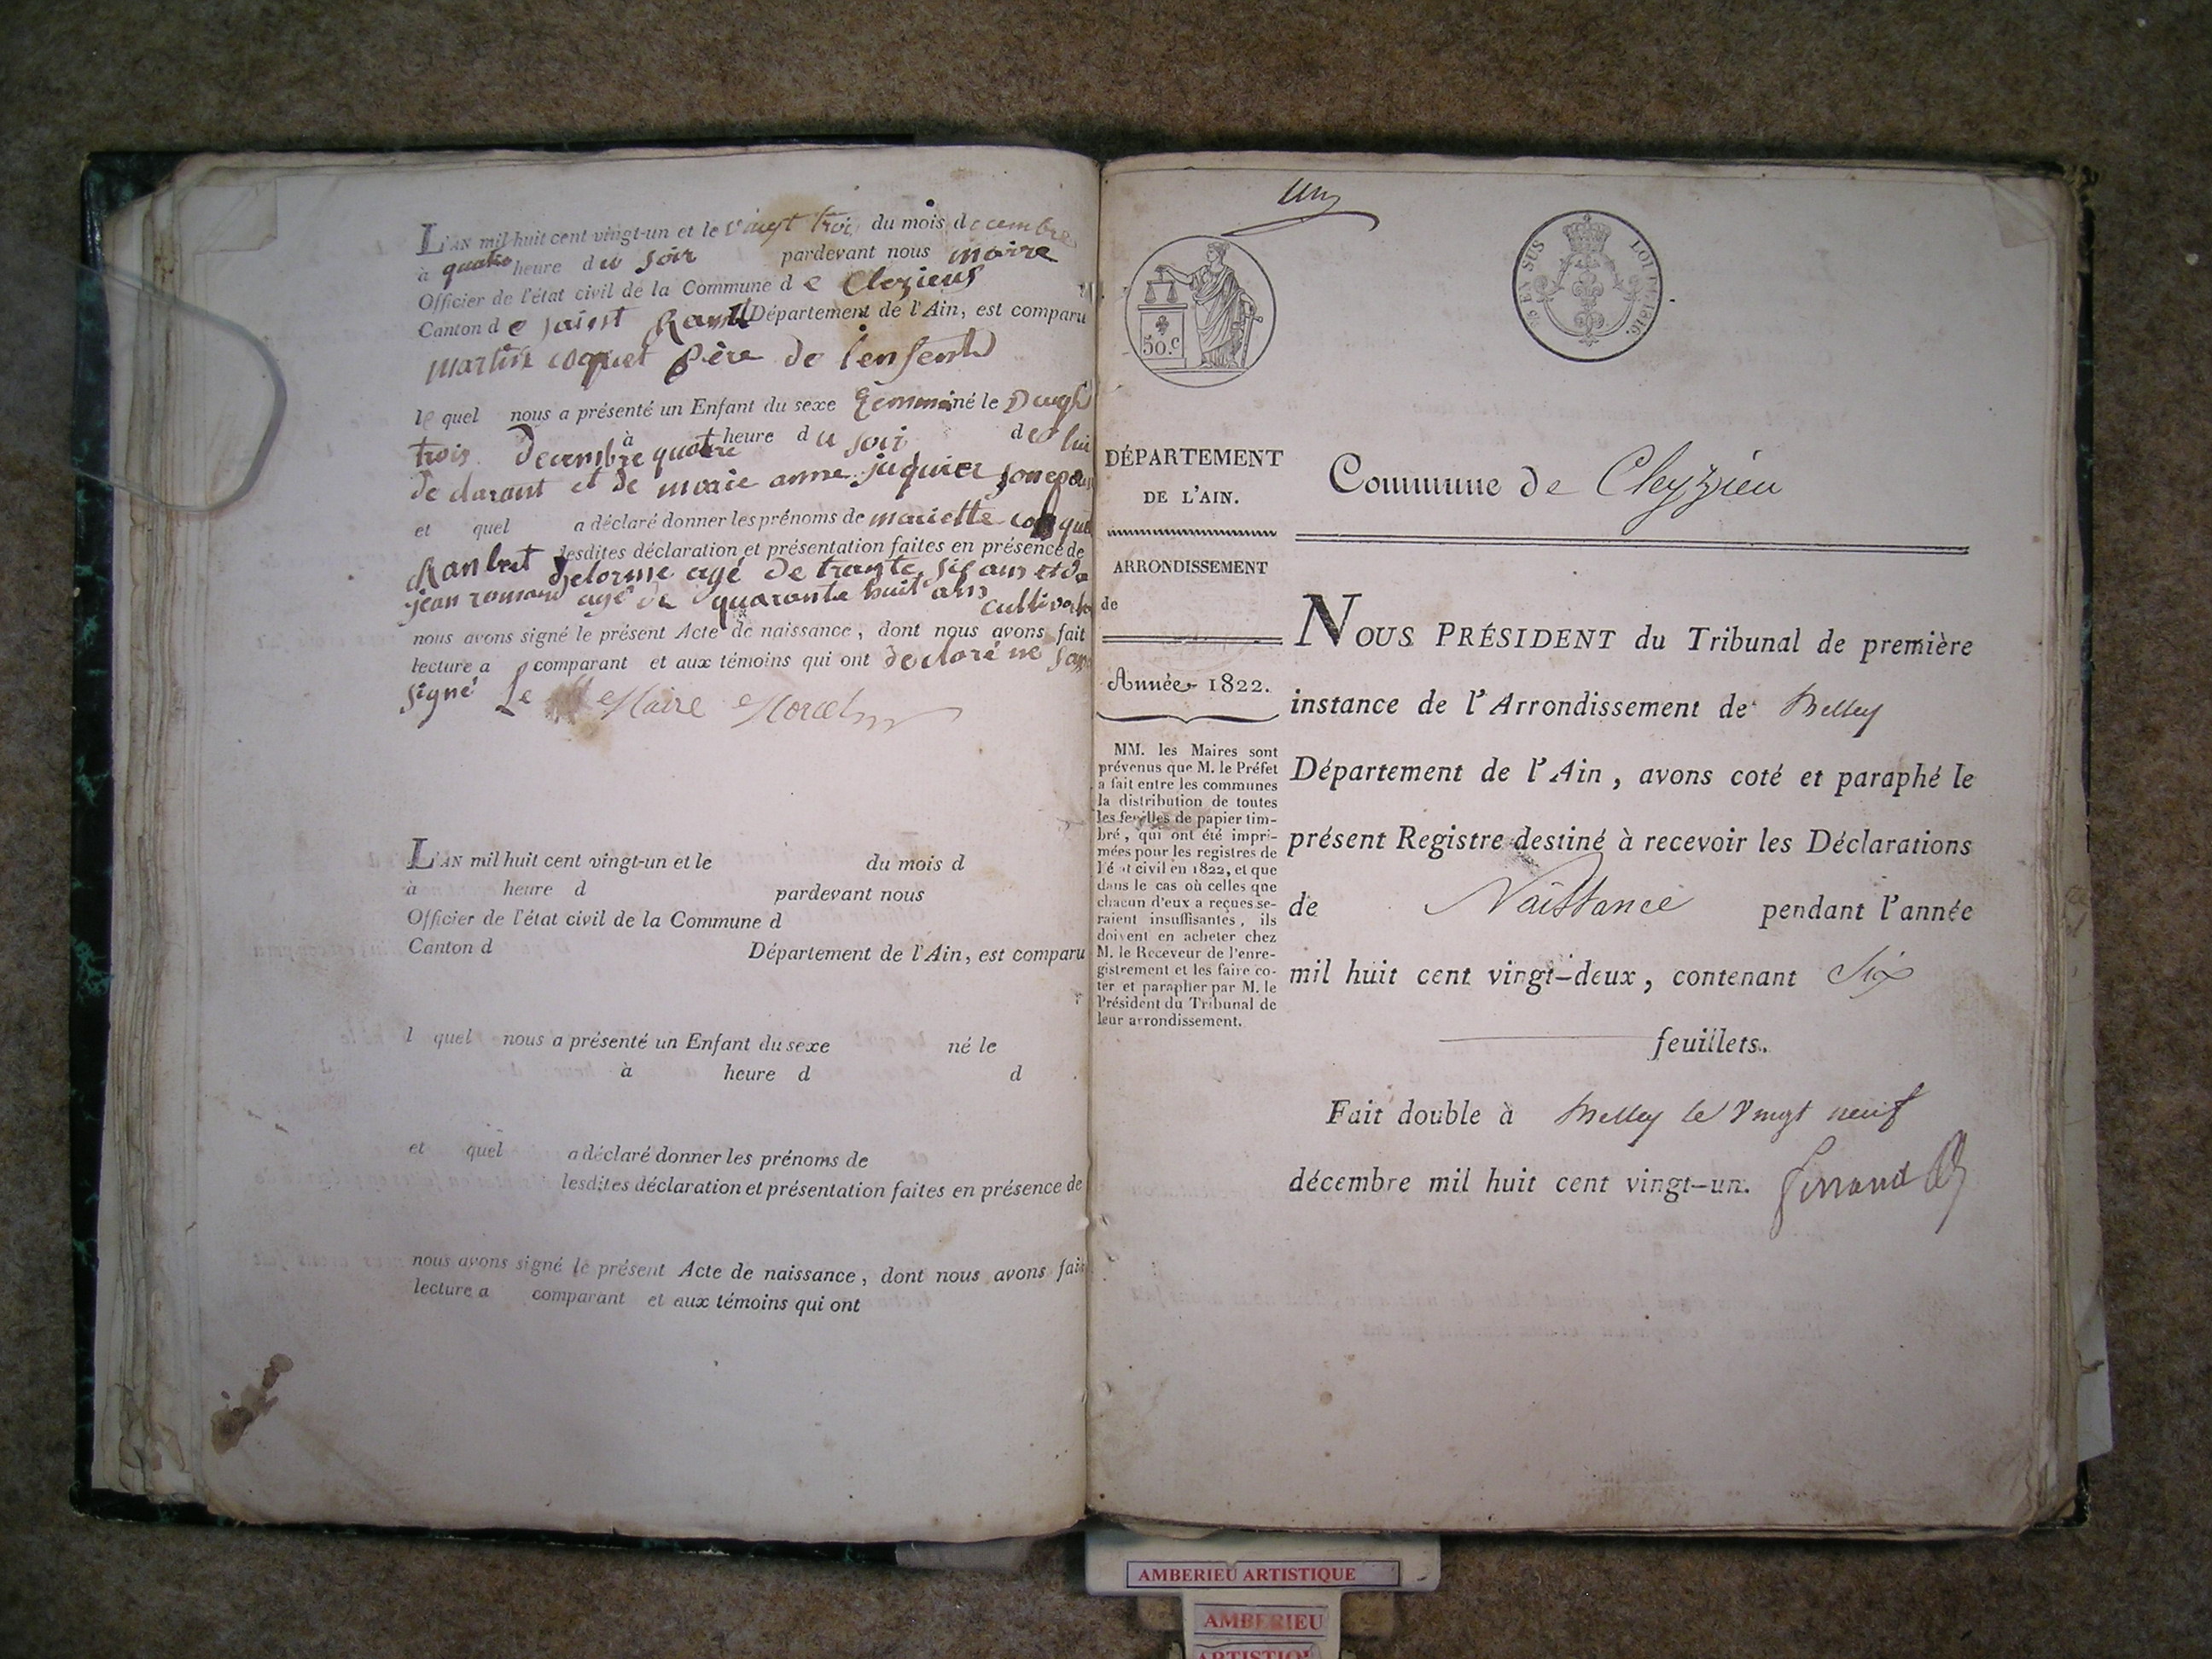 L'AN mil huit cent vingt-un et le vingt trois du mois decembre
à quatre heure du soir pardevant nous maire
Officier de l'état civil de la Commune de Clezieus
Canton de saint Département de l'Ain, est comparu
martin coquet père de lenfent
le quel nous a présenté un Enfant du sexe né le
trois decembre à quatre heure du soir de lui
de clarant et de marie anne juquier son epou
et quel a déclaré donner les prénoms de mariette
Ranbert lesdites déclaration et présentation faites en présence de
delorme agé de trante six ans et de
jean romand agé de quarante huit ans cultivate
nous avons signé le présent Acte de naissance, dont nous avons fait
lecture a comparant et aux témoins qui ont declaré ne
signé Le Maire
L'AN mil huit cent vingt-un et le du mois d
à heure d pardevant nous
Officier de l'état civil de la Commune d
Canton d Département de l'Ain, est comparu
l quel nous a présenté un Enfant du sexe né le
à heure d d
et quel a déclaré donner les prénoms de
lesdites déclaration et présentation faites en présence de
nous avons signé le présent Acte de naissance, dont nous avons fait
lecture a comparant et aux témoins qui ont
un
50.c
EN SUS LOI DE 1816.
DÉPARTEMENT
DE L'AIN.
ARRONDISSEMENT
de
Année 1822.
MM. les Maires sont
prévenus que M. le Préfet
a fait entre les communes
la distribution de toutes
les feuilles de papier tim-
bré, qui ont été impri-
mées pour les registres de
l'état civil en 1822, et que
dans le cas où celles que
chacun d'eux a reçues se-
raient insuffisantes, ils
doivent en acheter chez
M. le Receveur de l'enre-
gistrement et les faire co-
ter et parapher par M. le
Président du Tribunal de
leur arrondissement.
Commune de Cleyzieu
NOUS PRÉSIDENT du Tribunal de première
instance de l'Arrondissement de Belley
Département de l'Ain, avons coté et paraphé le
présent Registre destiné à recevoir les Déclarations
de Naissance pendant l'année
mil huit cent vingt-deux, contenant Six
feuillets.
Fait double à Belley le vingt neuf
décembre mil huit cent vingt-un.
AMBERIEU ARTISTIQUE
AMBERIEU
ARTISTIQUE